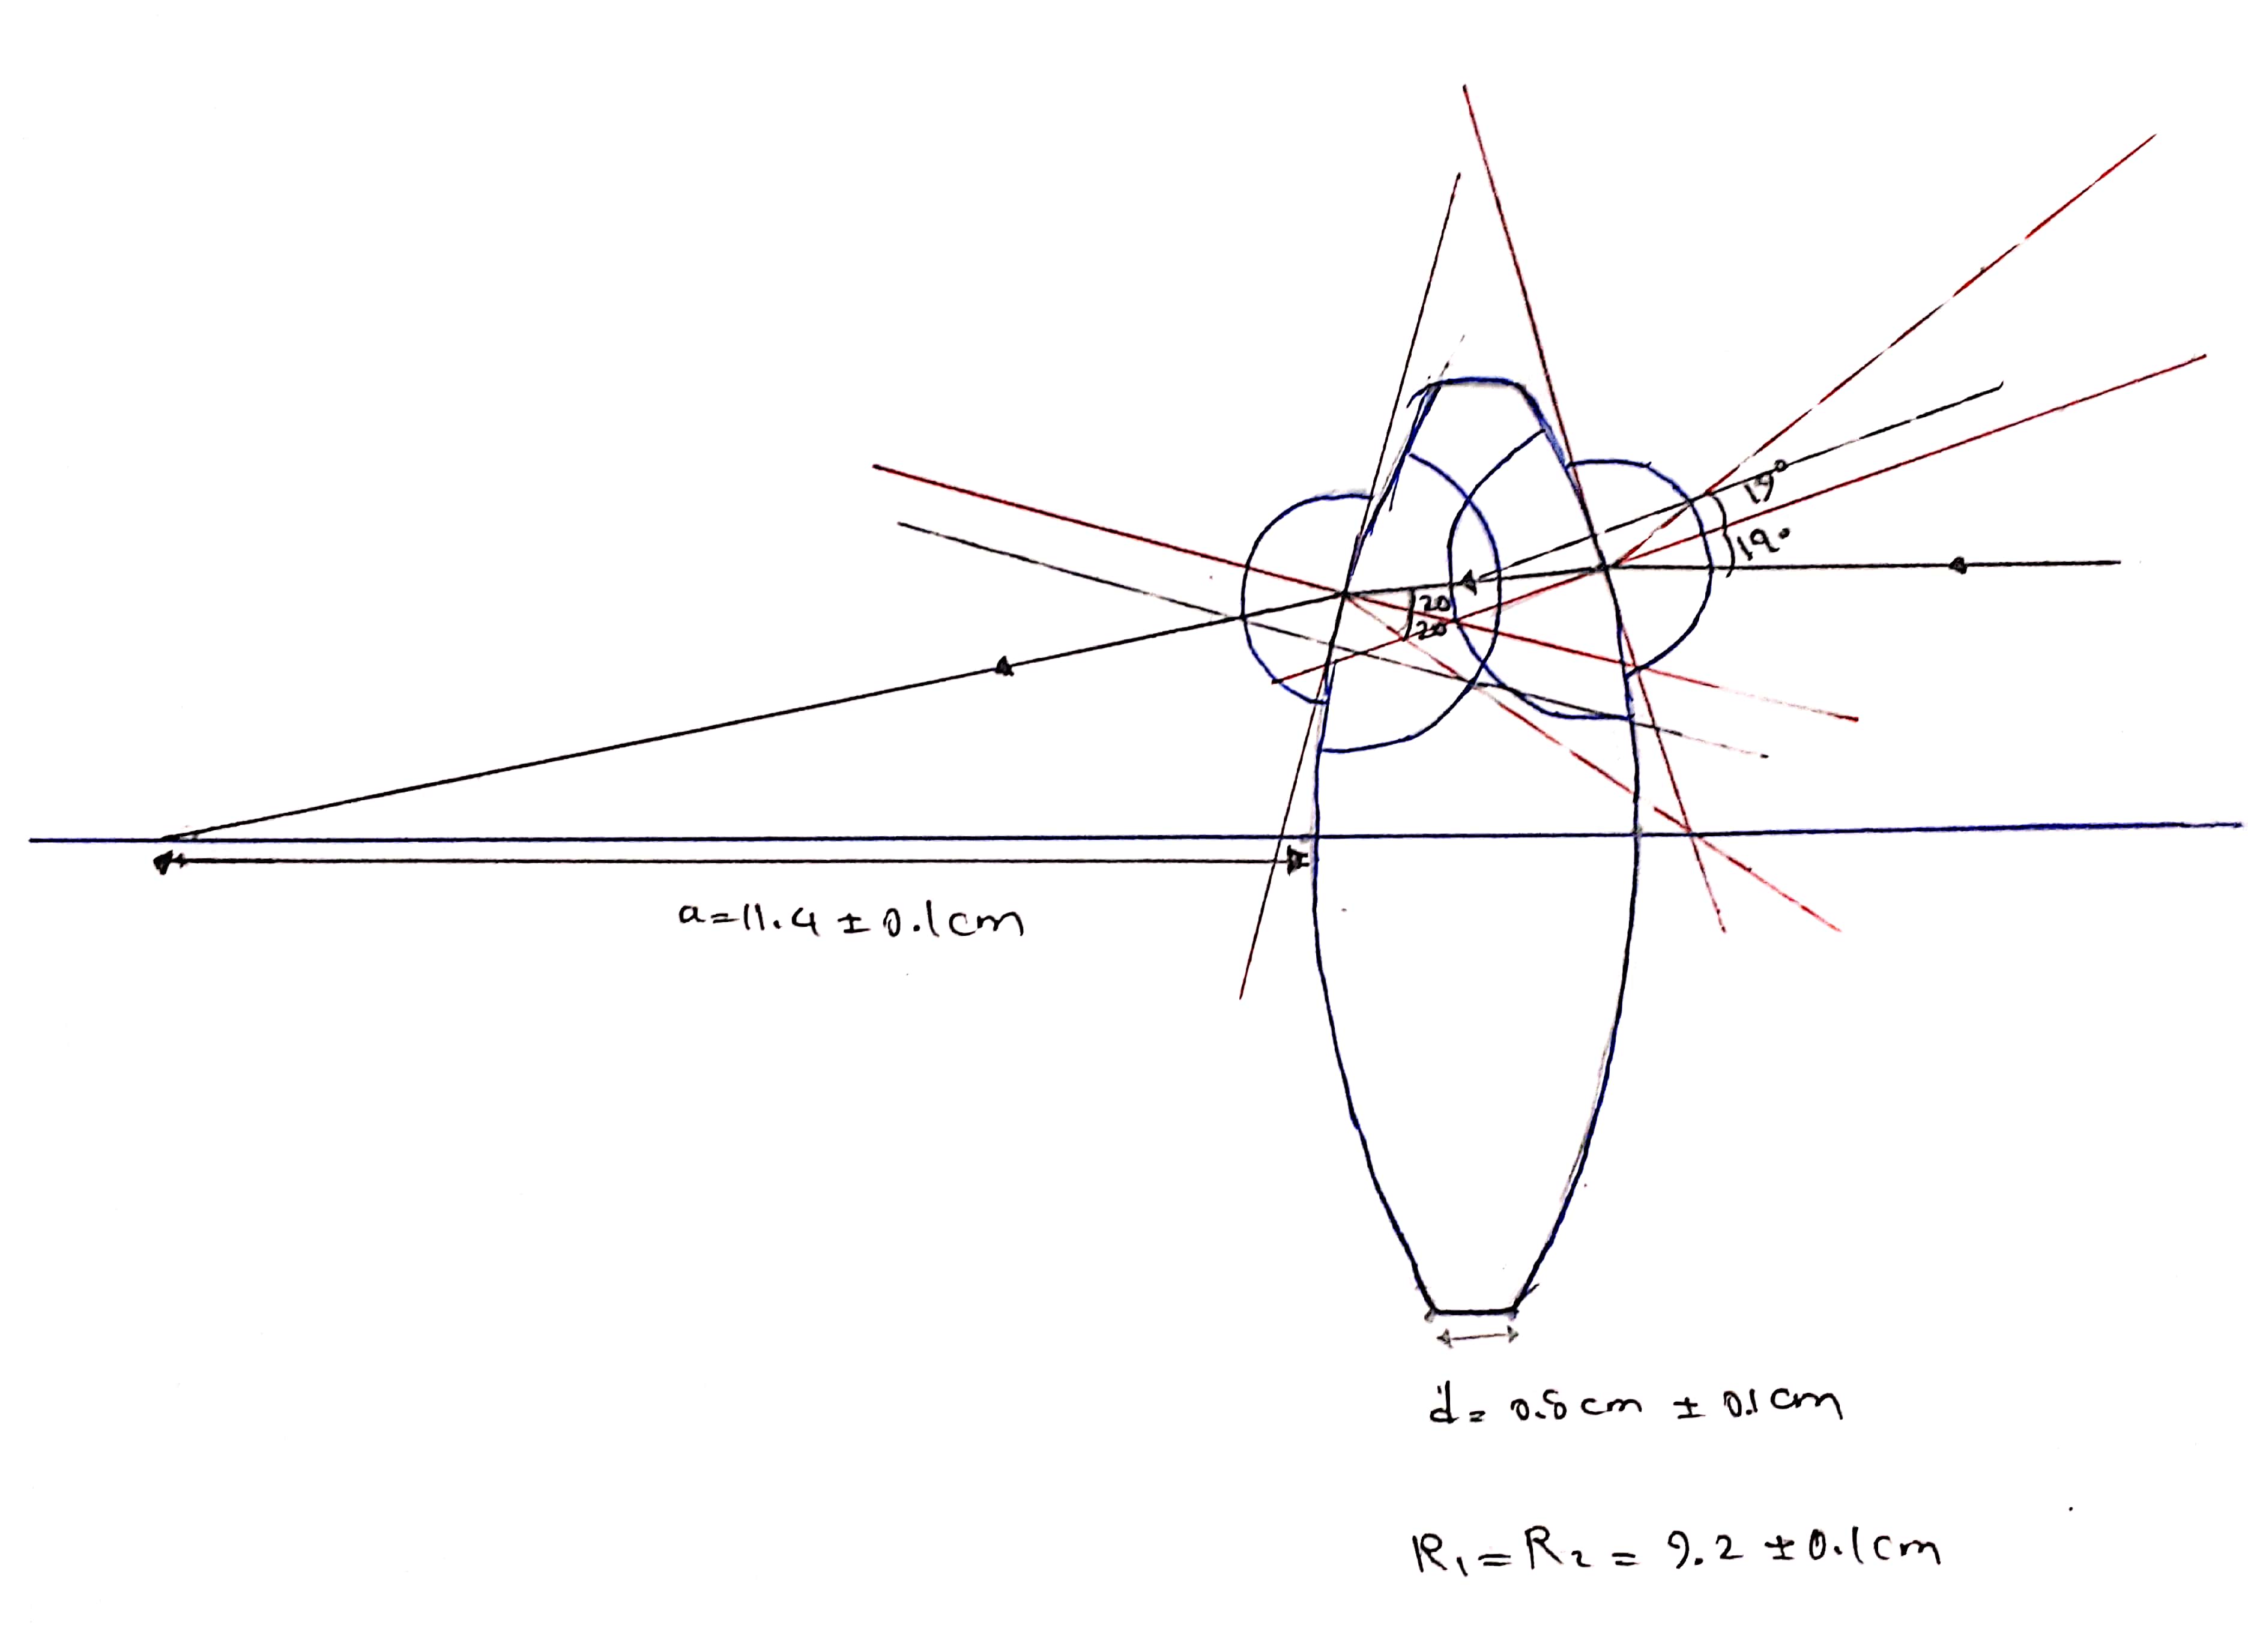 19°
19°
20
20
a=11.4 ± 0.1cm
d= 0.8cm ± 0.1cm
R₁=R₂= 9.2 ± 0.1cm